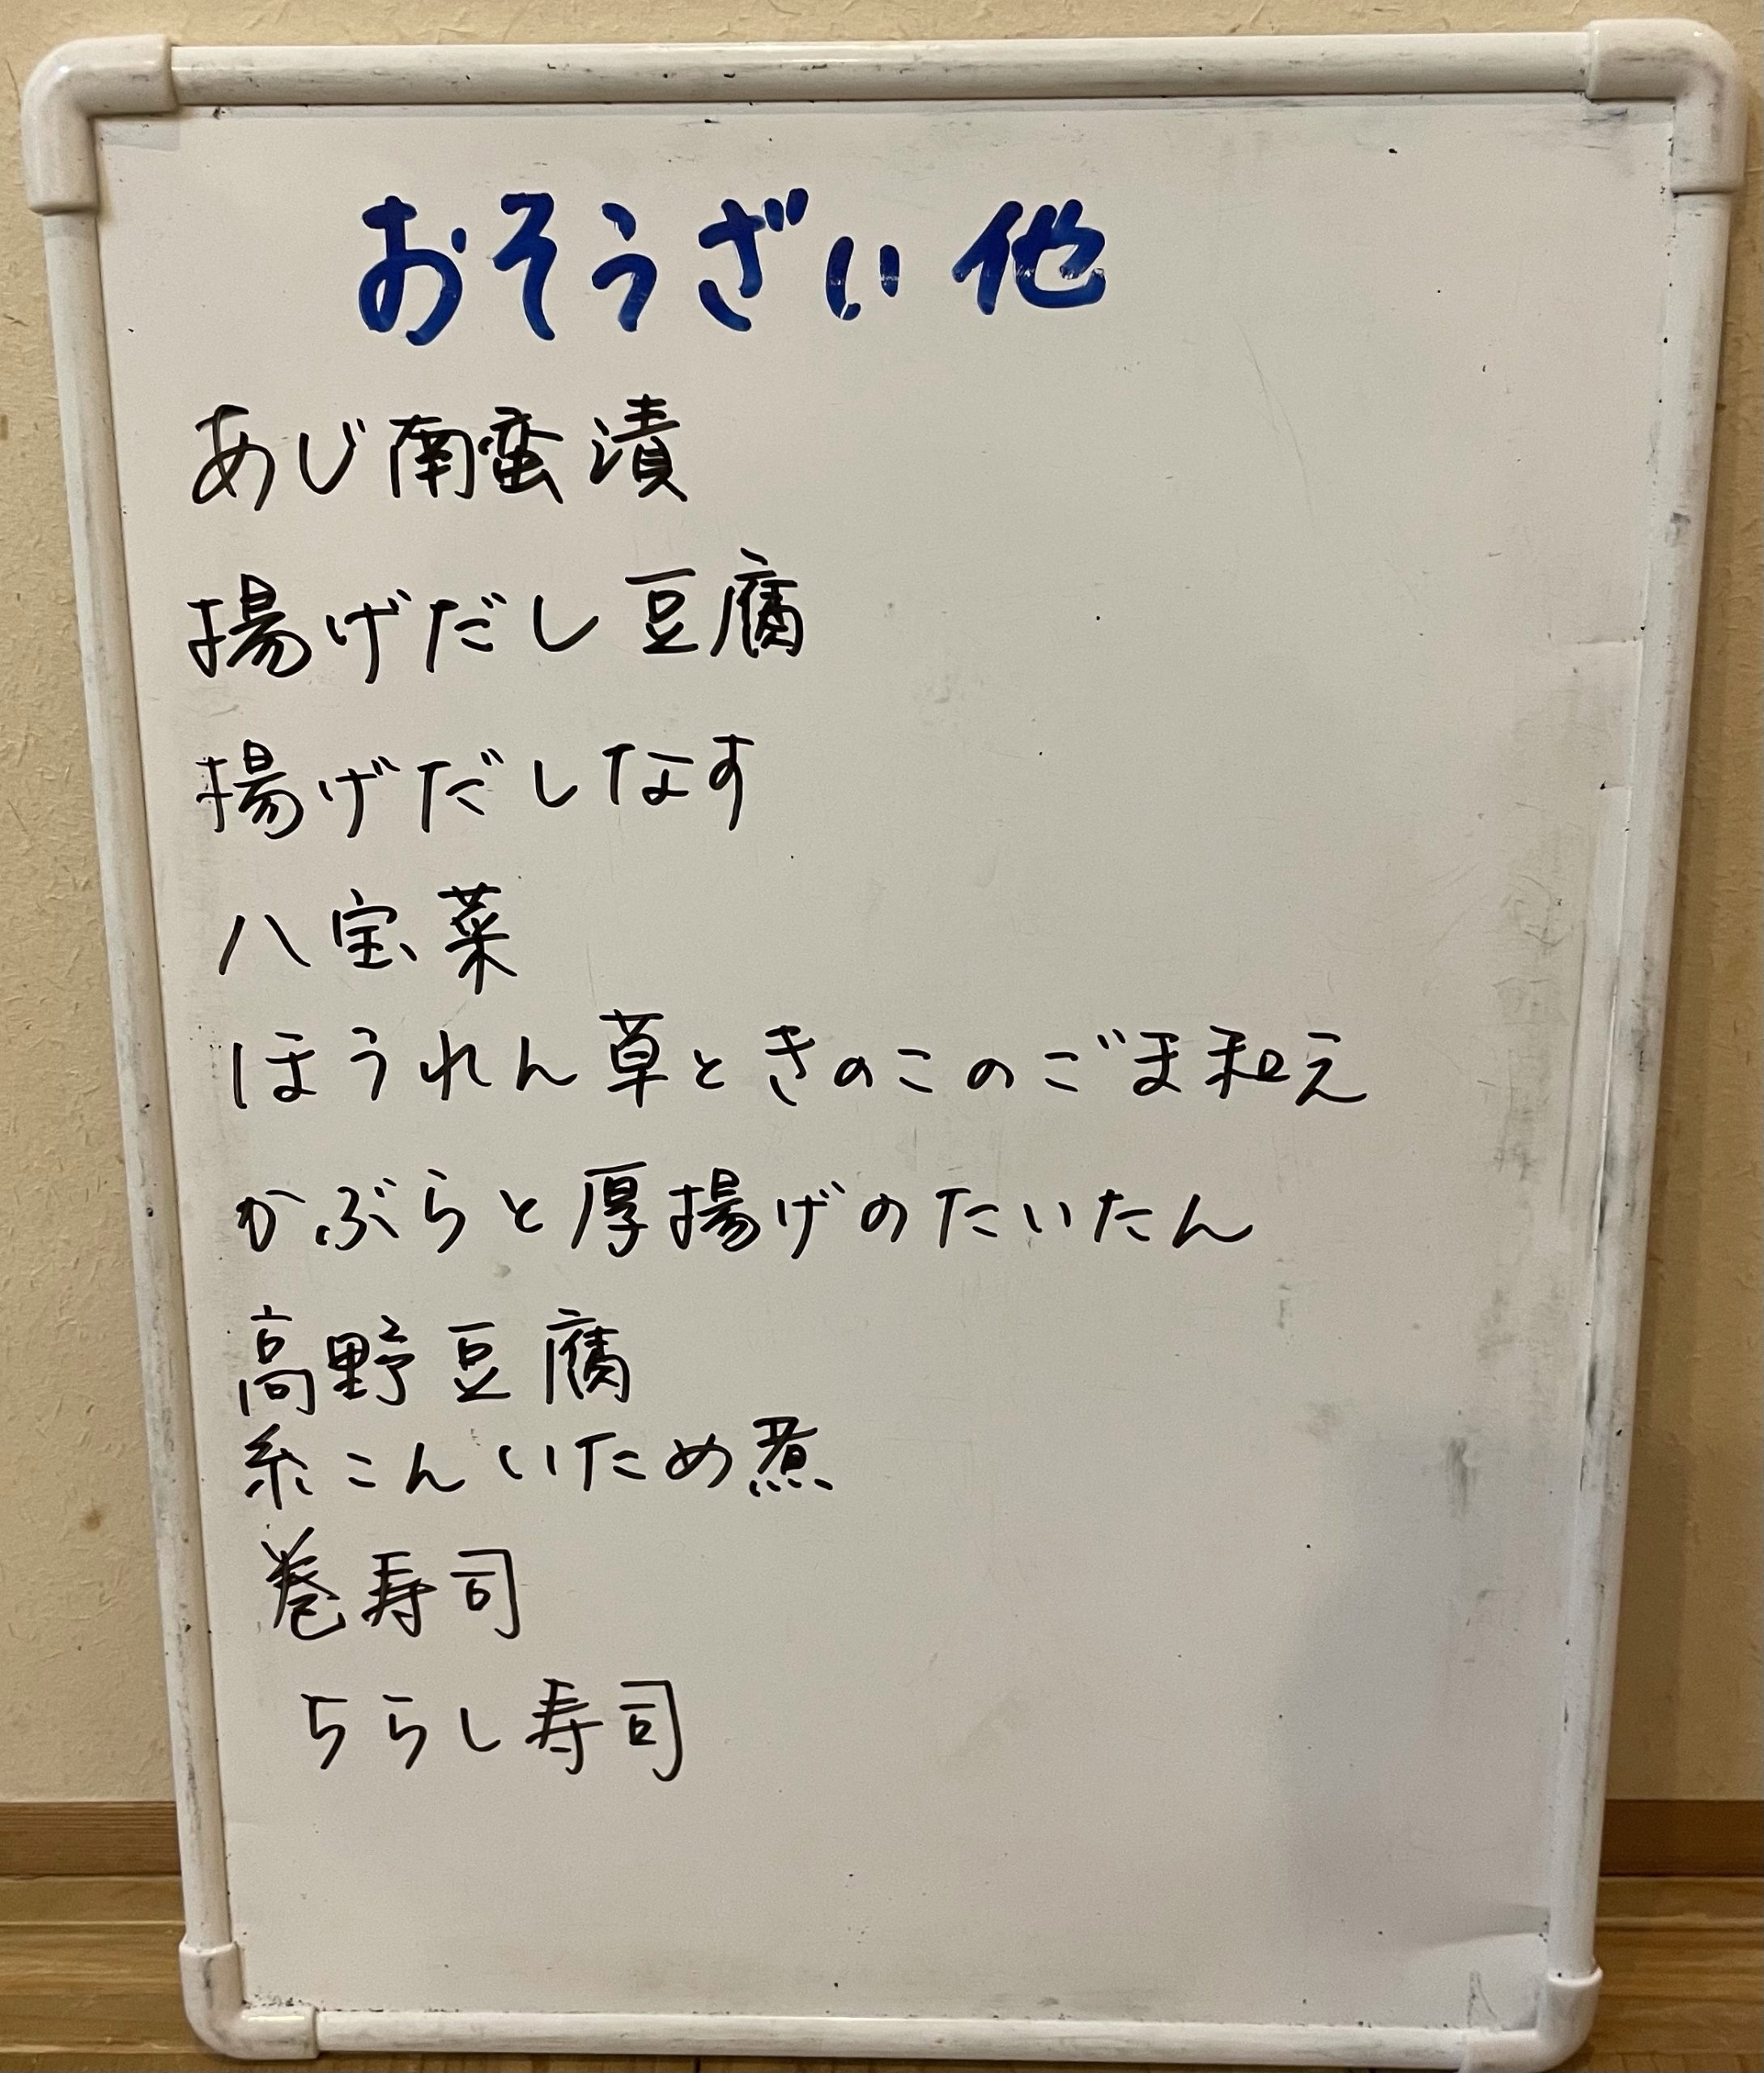 おそうざい 他
あじ南蛮漬
揚げだし豆腐
揚げだしなす
八宝菜
ほうれん草ときのこのごま和え
かぶらと厚揚げのたいたん
高野豆腐
糸こんいため煮
巻寿司
ちらし寿司